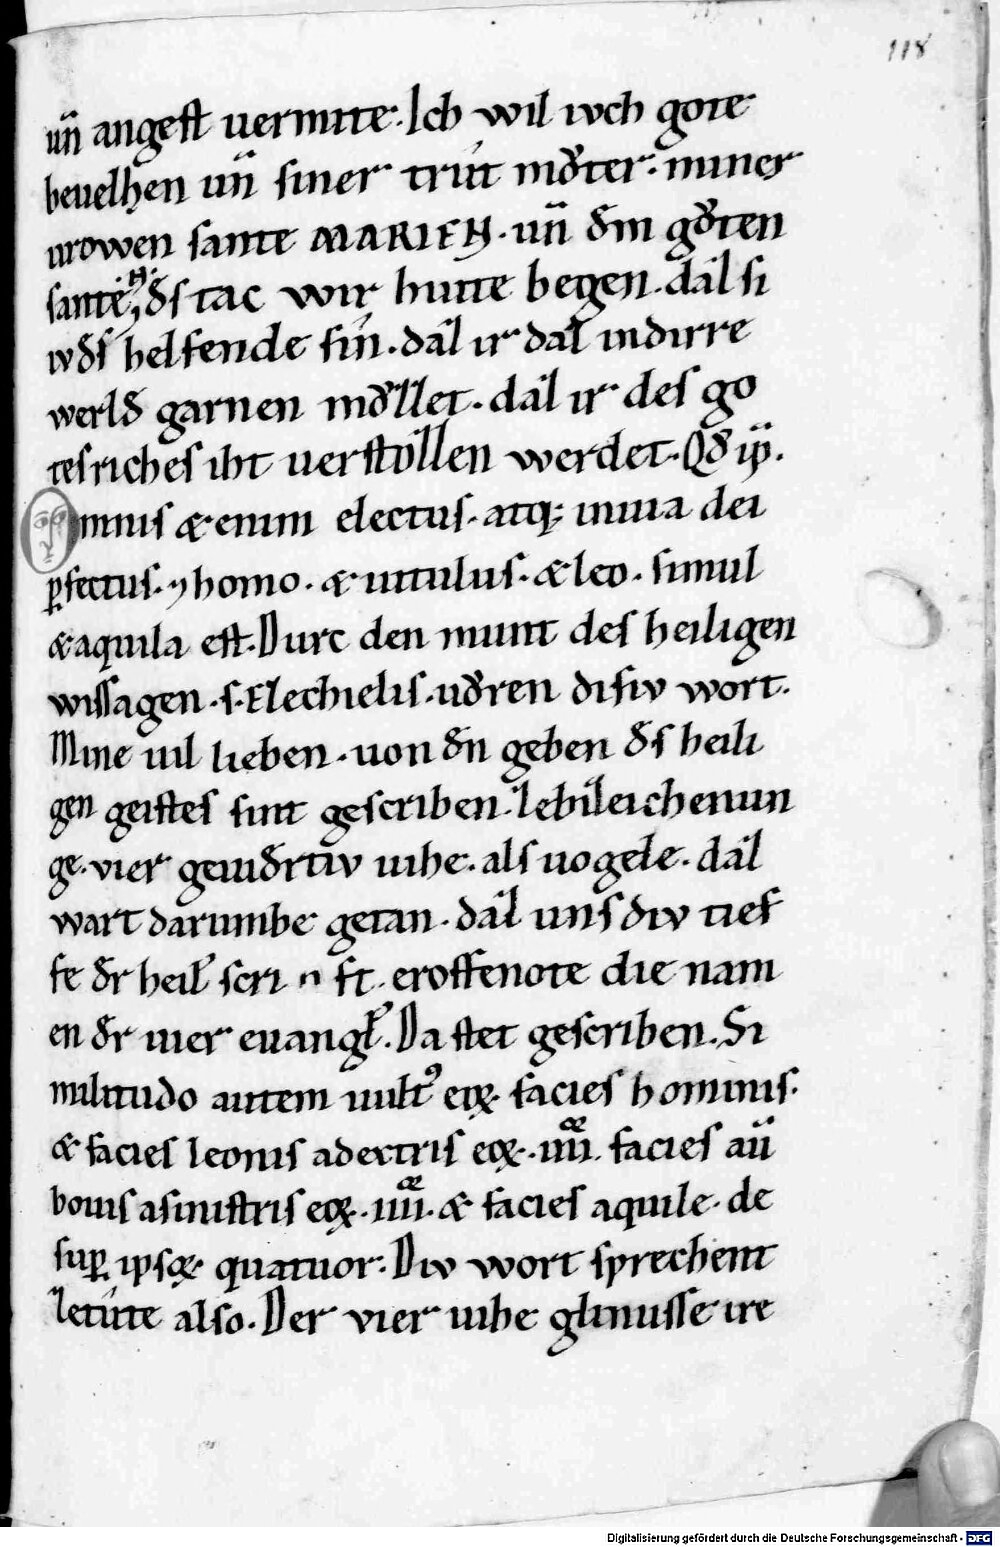 118
un̄ angest uermite. Ich wil iwch gote
beuelhen un̄ siner trût mv̊ter. miner
urowen sante MARIEN. un̄ dēm gv̊ten
santeN; ders tac wir hiute begen. daz si
iwers helfende sîn. daz ir daz in dirre
werlde garnen mv̊zzet. daz ir des go
tes riches iht uerstozzen werdet. Qd̄ ip̄.
Omnis &enim electus. atq; in uia dei
ꝑfectus. ⁊ homo. & uitulus. & leo. simul
& aquila est. Durc den munt des heiligen
wissagen. s. Ezechielis. uůren disiv wort.
Mine uil lieben. uon den geben des heili
gen geistes sint gescriben. ze bizeichenun
ge. vier geuidertiv uihe. als uogele. daz
wart darumbe getan. daz uns div tief
fe der heil̄ scrift. eroffenote die nam
en der uier euangł. Da stet gescriben. Si
militudo autem uult᾽ eoꝝ. facies hominis.
& facies leonis a dextris eoꝝ. iiii. facies aū
bouis a sinistris eoꝝ. iiii. & facies aquile. de
suꝑ ipsoꝝ quatuor. Div wort sprechent
ze tûte also. Der vier uihe glinusse ire
Digitalisierung gefördert durch die Deutsche Forschungsgemeinschaft - DFG